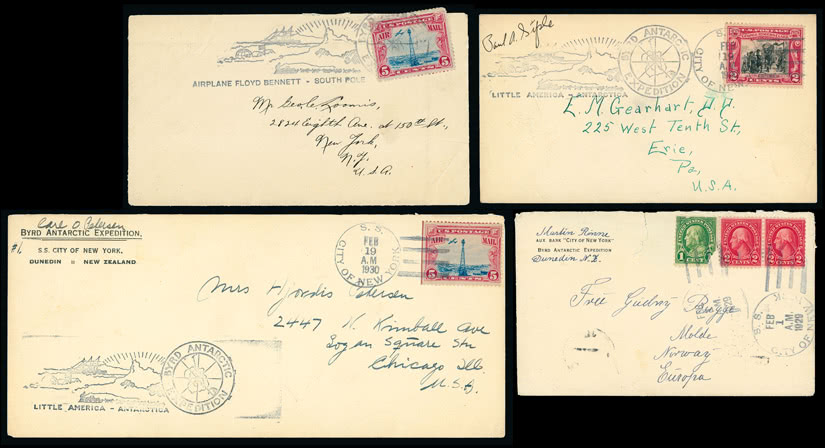 AIRPLANE FLOYD BENNETT - SOUTH POLE
U.S. POSTAGE
AIR MAIL
5 CENTS 5
Mr Geo. C. Loomis,
2824 Eighth Ave. at 150th St.,
New York,
N.Y.
U.S.A.
Paul A. Siple
LITTLE AMERICA - ANTARCTICA
BYRD ANTARCTIC
EXPEDITION
S.S.
FEB
19
A.M
CITY OF NEW
U.S. POSTAGE
2 CENTS 2
E. M. Gearhart, D.D.
225 West Tenth St,
Erie,
Pa,
U.S.A.
Carl O Petersen
BYRD ANTARCTIC EXPEDITION.
#1,
S.S. CITY OF NEW YORK,
DUNEDIN :: NEW ZEALAND
S. S.
FEB
19
A.M
1930
CITY OF NEW YORK
U.S. POSTAGE
AIR MAIL
5 CENTS 5
Mrs Hjordis Petersen
2447 N. Kimball Ave
Logan Square Stn
Chicago Ill
U.S.A.
BYRD ANTARCTIC
EXPEDITION
LITTLE AMERICA - ANTARCTICA
Martin Rönne
AUX. BARK "CITY OF NEW YORK"
BYRD ANTARCTIC EXPEDITION
Dunedin N.Z.
1 CENTS 1
2 CENTS 2
2 CENTS 2
S. S.
FEB
1
A.M.
1929
CITY OF NEW
Gudny
Molde
Norway
Europa